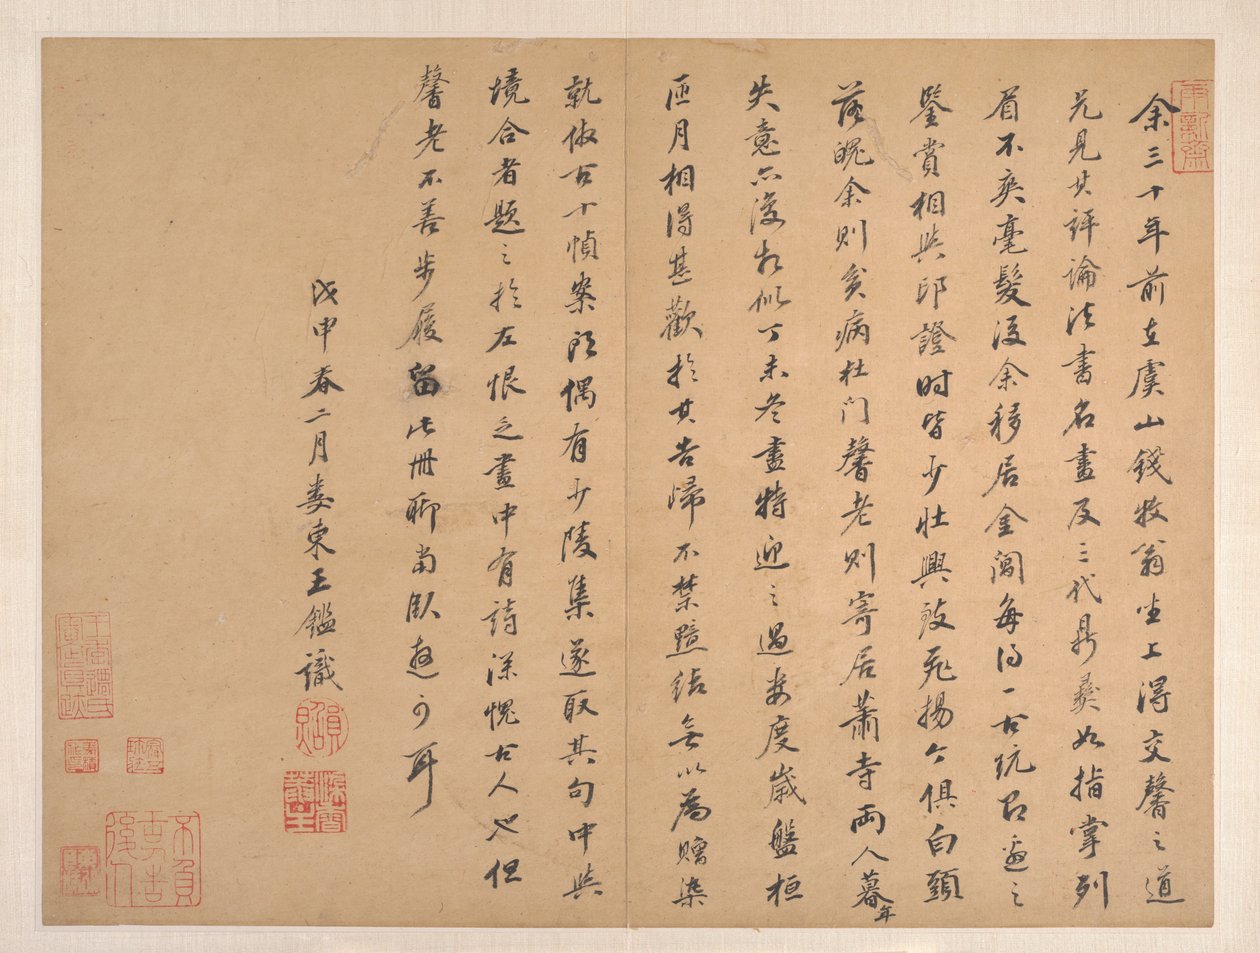 余三十年前在虞山錢牧翁坐上得交馨之道
兄見其評論法書名畫及三代鼎彝如指掌列
眉不爽毫髮後余移居金閶每得一古玩召馨之
鑒賞相與印證時皆少壯興致飛揚今俱白頭
落魄余則貧病杜门馨老則寄居蕭寺兩人暮年
失意亦復相似丁未冬盡特迎之過婁度歲盤桓
匝月相得甚歡於其告歸不禁黯結無以為贈案
就倣古十幀案頭偶有少陵集遂取其句中與
境合者題之於左恨乏畫中有詩深愧古人也但
馨老不善步履留此冊聊當臥遊可耳
戊申春二月婁東王鑑識